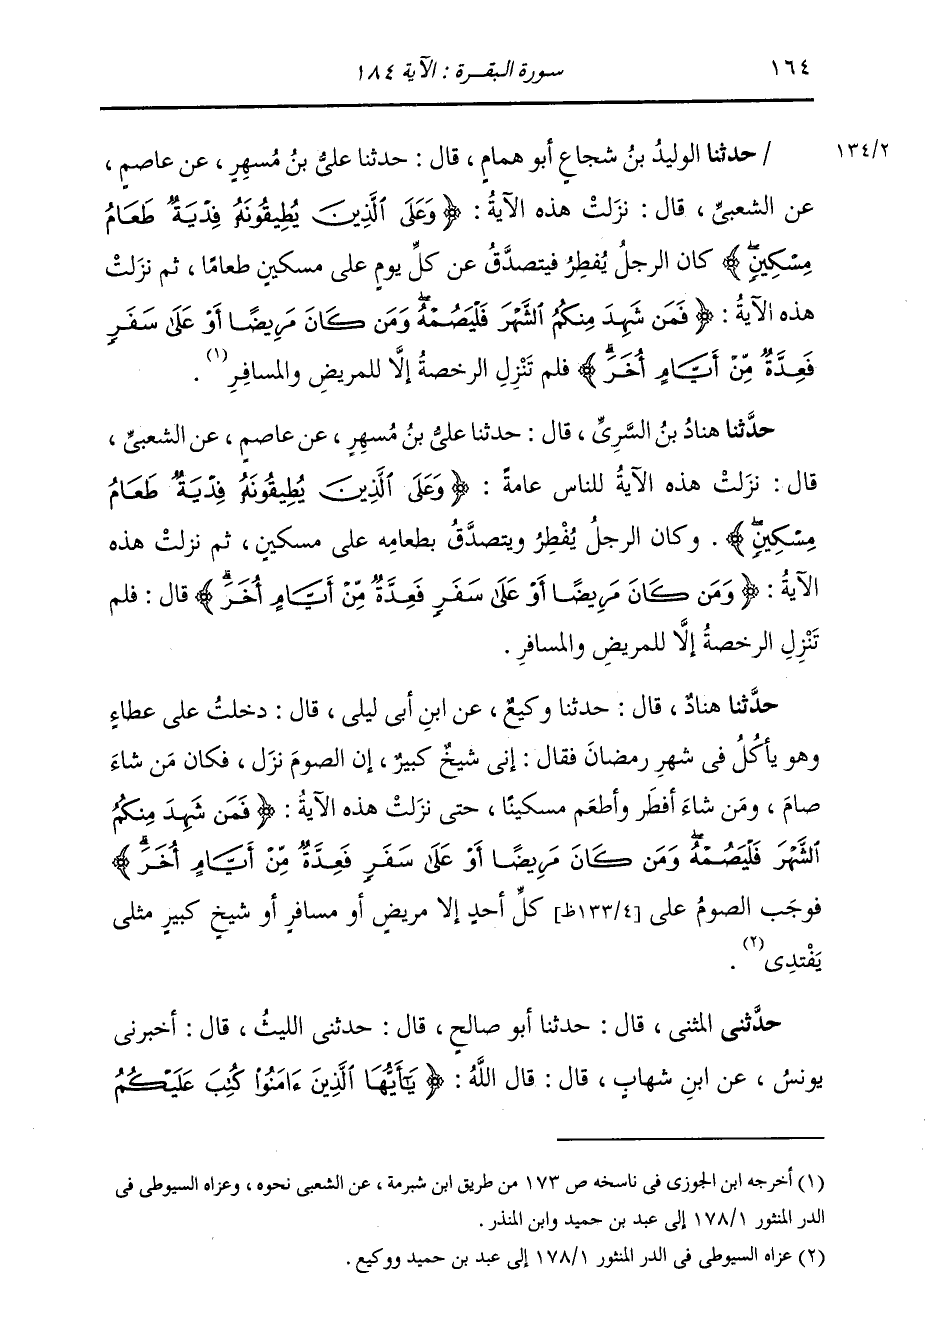 ١٦٤ سورة البقرة : الآية ١٨٤
١٣٤/٢ / حدثنا الوليدُ بنُ شجاعٍ أبو همامٍ ، قال : حدثنا علىُّ بنُ مُسهِرٍ ، عن عاصمٍ ،
عن الشعبىِّ ، قال : نزَلتْ هذه الآيةُ : ﴿ وَعَلَى ٱلَّذِينَ يُطِيقُونَهُۥ فِدْيَةٌ طَعَامُ
مِسْكِينٍۖ ﴾ كان الرجلُ يُفطِرُ فيتصدَّقُ عن كلِّ يومٍ على مسكينٍ طعامًا ، ثم نزَلتْ
هذه الآيةُ : ﴿ فَمَن شَهِدَ مِنكُمُ ٱلشَّهْرَ فَلْيَصُمْهُۖ وَمَن كَانَ مَرِيضًا أَوْ عَلَىٰ سَفَرٍ
فَعِدَّةٌ مِّنْ أَيَّامٍ أُخَرَۗ ﴾ فلم تَنْزِلِ الرخصةُ إلَّا للمريضِ والمسافرِ(١) .
حدَّثنا هنادُ بنُ السَّرِىِّ ، قال : حدثنا علىُّ بنُ مُسهِرٍ ، عن عاصمٍ ، عن الشعبىِّ ،
قال : نزَلت هذه الآيةُ للناس عامةً : ﴿ وَعَلَى ٱلَّذِينَ يُطِيقُونَهُۥ فِدْيَةٌ طَعَامُ
مِسْكِينٍۖ ﴾ . وكان الرجلُ يُفْطِرُ ويتصدَّقُ بطعامِه على مسكينٍ ، ثم نزلتْ هذه
الآيةُ : ﴿ وَمَن كَانَ مَرِيضًا أَوْ عَلَىٰ سَفَرٍ فَعِدَّةٌ مِّنْ أَيَّامٍ أُخَرَۗ ﴾ قال : فلم
تَنْزِلِ الرخصةُ إلَّا للمريضِ والمسافرِ .
حدَّثنا هنادٌ ، قال : حدثنا وكيعٌ ، عن ابنِ أبى ليلى ، قال : دخلتُ على عطاءٍ
وهو يأكُلُ فى شهرِ رمضانَ فقال : إنى شيخٌ كبيرٌ ، إن الصومَ نزَل ، فكان مَن شاءَ
صامَ ، ومَن شاءَ أفطَر وأطعَم مسكينًا ، حتى نزَلتْ هذه الآيةُ : ﴿ فَمَن شَهِدَ مِنكُمُ
ٱلشَّهْرَ فَلْيَصُمْهُۖ وَمَن كَانَ مَرِيضًا أَوْ عَلَىٰ سَفَرٍ فَعِدَّةٌ مِّنْ أَيَّامٍ أُخَرَۗ ﴾
فوجَب الصومُ على [١٣٣/٤ظ] كلِّ أحدٍ إلا مريضٍ أو مسافرٍ أو شيخٍ كبيرٍ مثلى
يَفْتدِى(٢) .
حدَّثنى المثنى ، قال : حدثنا أبو صالحٍ ، قال : حدثنى الليثُ ، قال : أخبرنى
يونسُ ، عن ابنِ شهابٍ ، قال : قال اللَّهُ : ﴿ يَٰٓأَيُّهَا ٱلَّذِينَ ءَامَنُوا۟ كُتِبَ عَلَيْكُمُ
(١) أخرجه ابن الجوزى فى ناسخه ص ١٧٣ من طريق ابن شبرمة ، عن الشعبى نحوه ، وعزاه السيوطى فى
الدر المنثور ١٧٨/١ إلى عبد بن حميد وابن المنذر .
(٢) عزاه السيوطى فى الدر المنثور ١٧٨/١ إلى عبد بن حميد ووكيع .